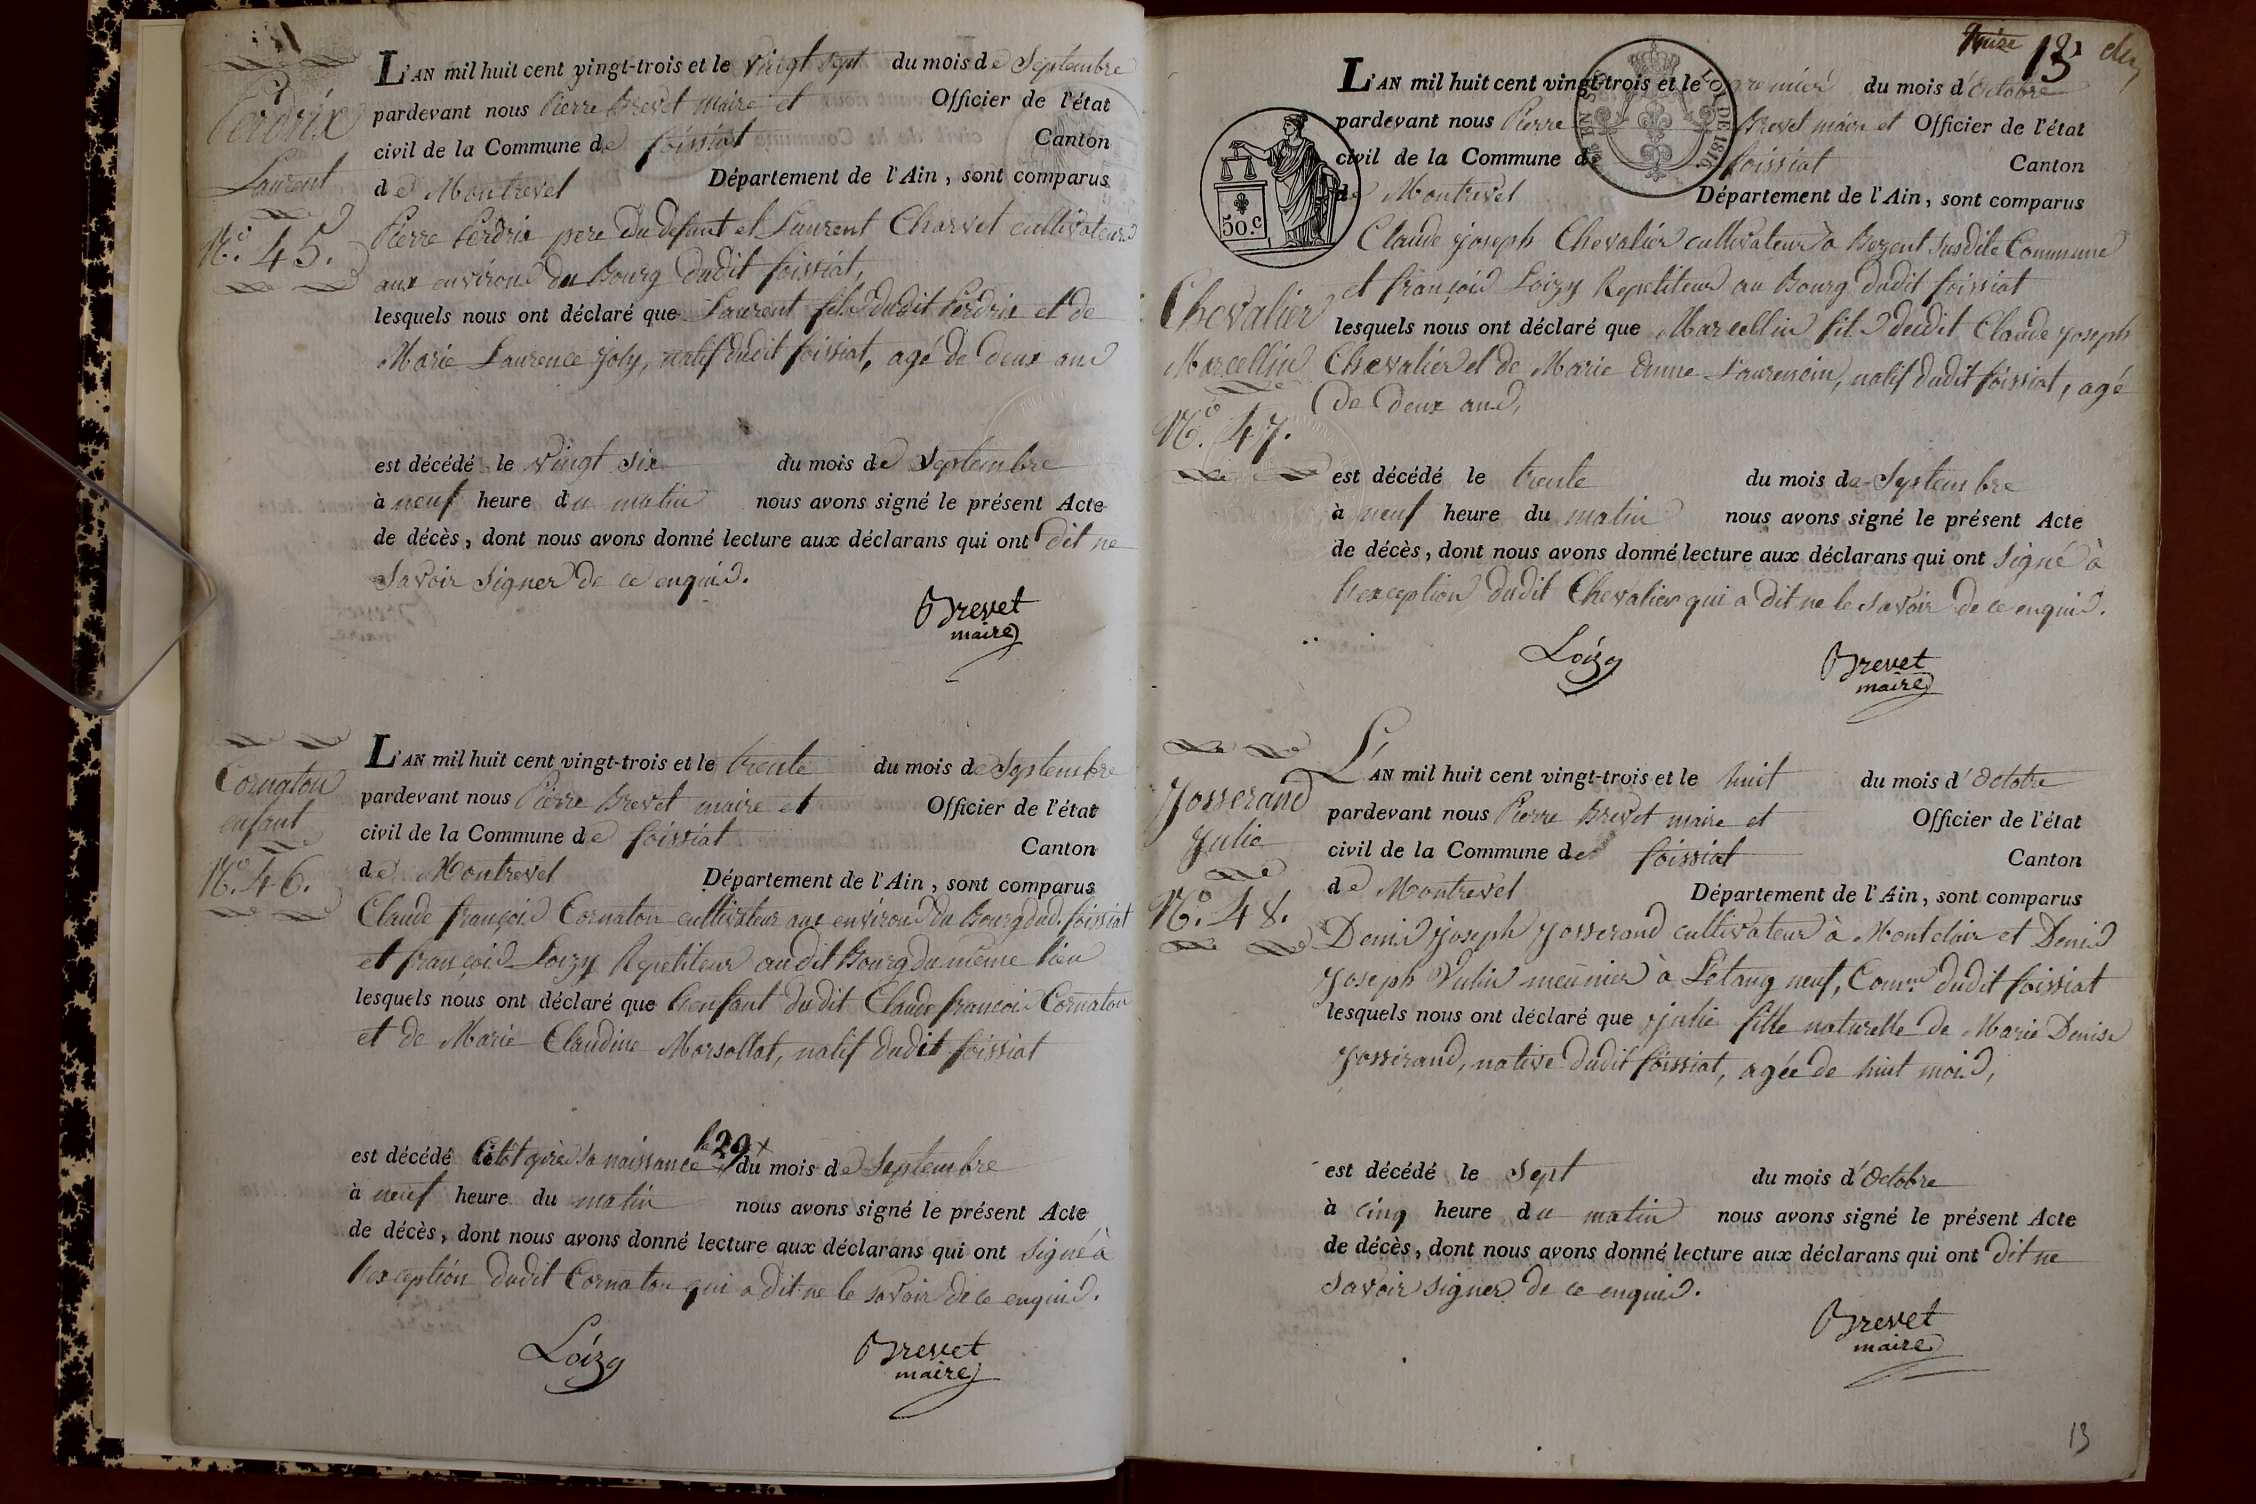 Perdrix
Laurent
N.° 45.
L'AN mil huit cent vingt-trois et le vingt sept du mois de Septembre
pardevant nous Pierre Brevet maire et Officier de l'état
civil de la Commune de foissiat Canton
de Montrevel Département de l'Ain, sont comparus
Pierre Perdrix pere du defunt et Laurent Charvet cultivateurs
aux environs du Bourg dudit foissiat,
lesquels nous ont déclaré que Laurent fils dudit Perdrix et de
Marie Laurence Joly, natif dudit foissiat, agé de deux ans
est décédé le vingt six du mois de Septembre
à neuf heure du matin nous avons signé le présent Acte
de décès, dont nous avons donné lecture aux déclarans qui ont dit ne
Savoir Signer de ce enquis.
Brevet
maire
Cornaton
enfant
N.° 46.
L'AN mil huit cent vingt-trois et le trente du mois de Septembre
pardevant nous Pierre Brevet maire et Officier de l'état
civil de la Commune de foissiat Canton
de Montrevel Département de l'Ain, sont comparus
Claude françois Cornaton cultivateur aux environs du Bourg dud. foissiat
et françois Loizy Repetiteur audit Bourg du même lieu
lesquels nous ont déclaré que l'enfant dudit Claude françois Cornaton
et de Marie Claudine Morsollat, natif dudit foissiat
est décédé sa naissance le 29 du mois de Septembre
à neuf heure du matin nous avons signé le présent Acte
de décès, dont nous avons donné lecture aux déclarans qui ont signé à
l'exception dudit Cornaton qui a dit ne le savoir de ce enquis.
Loizy
Brevet
maire
13
LOI DE 1816
50.c
Chevalier
Marcellin
N.° 47.
L'AN mil huit cent vingt-trois et le premier du mois d'Octobre
pardevant nous Pierre Brevet maire et Officier de l'état
civil de la Commune de foissiat Canton
de Montrevel Département de l'Ain, sont comparus
Claude Joseph Chevalier cultivateur à Bezent Susdite Commune
et françois Loizy Repetiteur au Bourg dudit foissiat
lesquels nous ont déclaré que Marcellin fils dudit Claude Joseph
Chevalier et de Marie Anne Laurencin, natif dudit foissiat, agé
de deux ans,
est décédé le trente du mois de Septembre
à neuf heure du matin nous avons signé le présent Acte
de décès, dont nous avons donné lecture aux déclarans qui ont signé à
l'exception dudit Chevalier qui a dit ne le savoir de ce enquis.
Loizy
Brevet
maire
Josserand
Julie
N.° 48.
L'AN mil huit cent vingt-trois et le huit du mois d'Octobre
pardevant nous Pierre Brevet maire et Officier de l'état
civil de la Commune de foissiat Canton
de Montrevel Département de l'Ain, sont comparus
Denis Joseph Josserand cultivateur à Montclair et Denis
Joseph Vulin meunier à Letang neuf, Com.ne dudit foissiat
lesquels nous ont déclaré que Julie fille naturelle de Marie Denise
Josserand, native dudit foissiat, agée de huit mois,
est décédé le Sept du mois d'Octobre
à cinq heure du matin nous avons signé le présent Acte
de décès, dont nous avons donné lecture aux déclarans qui ont dit ne
Savoir signer de ce enquis.
Brevet
maire
13